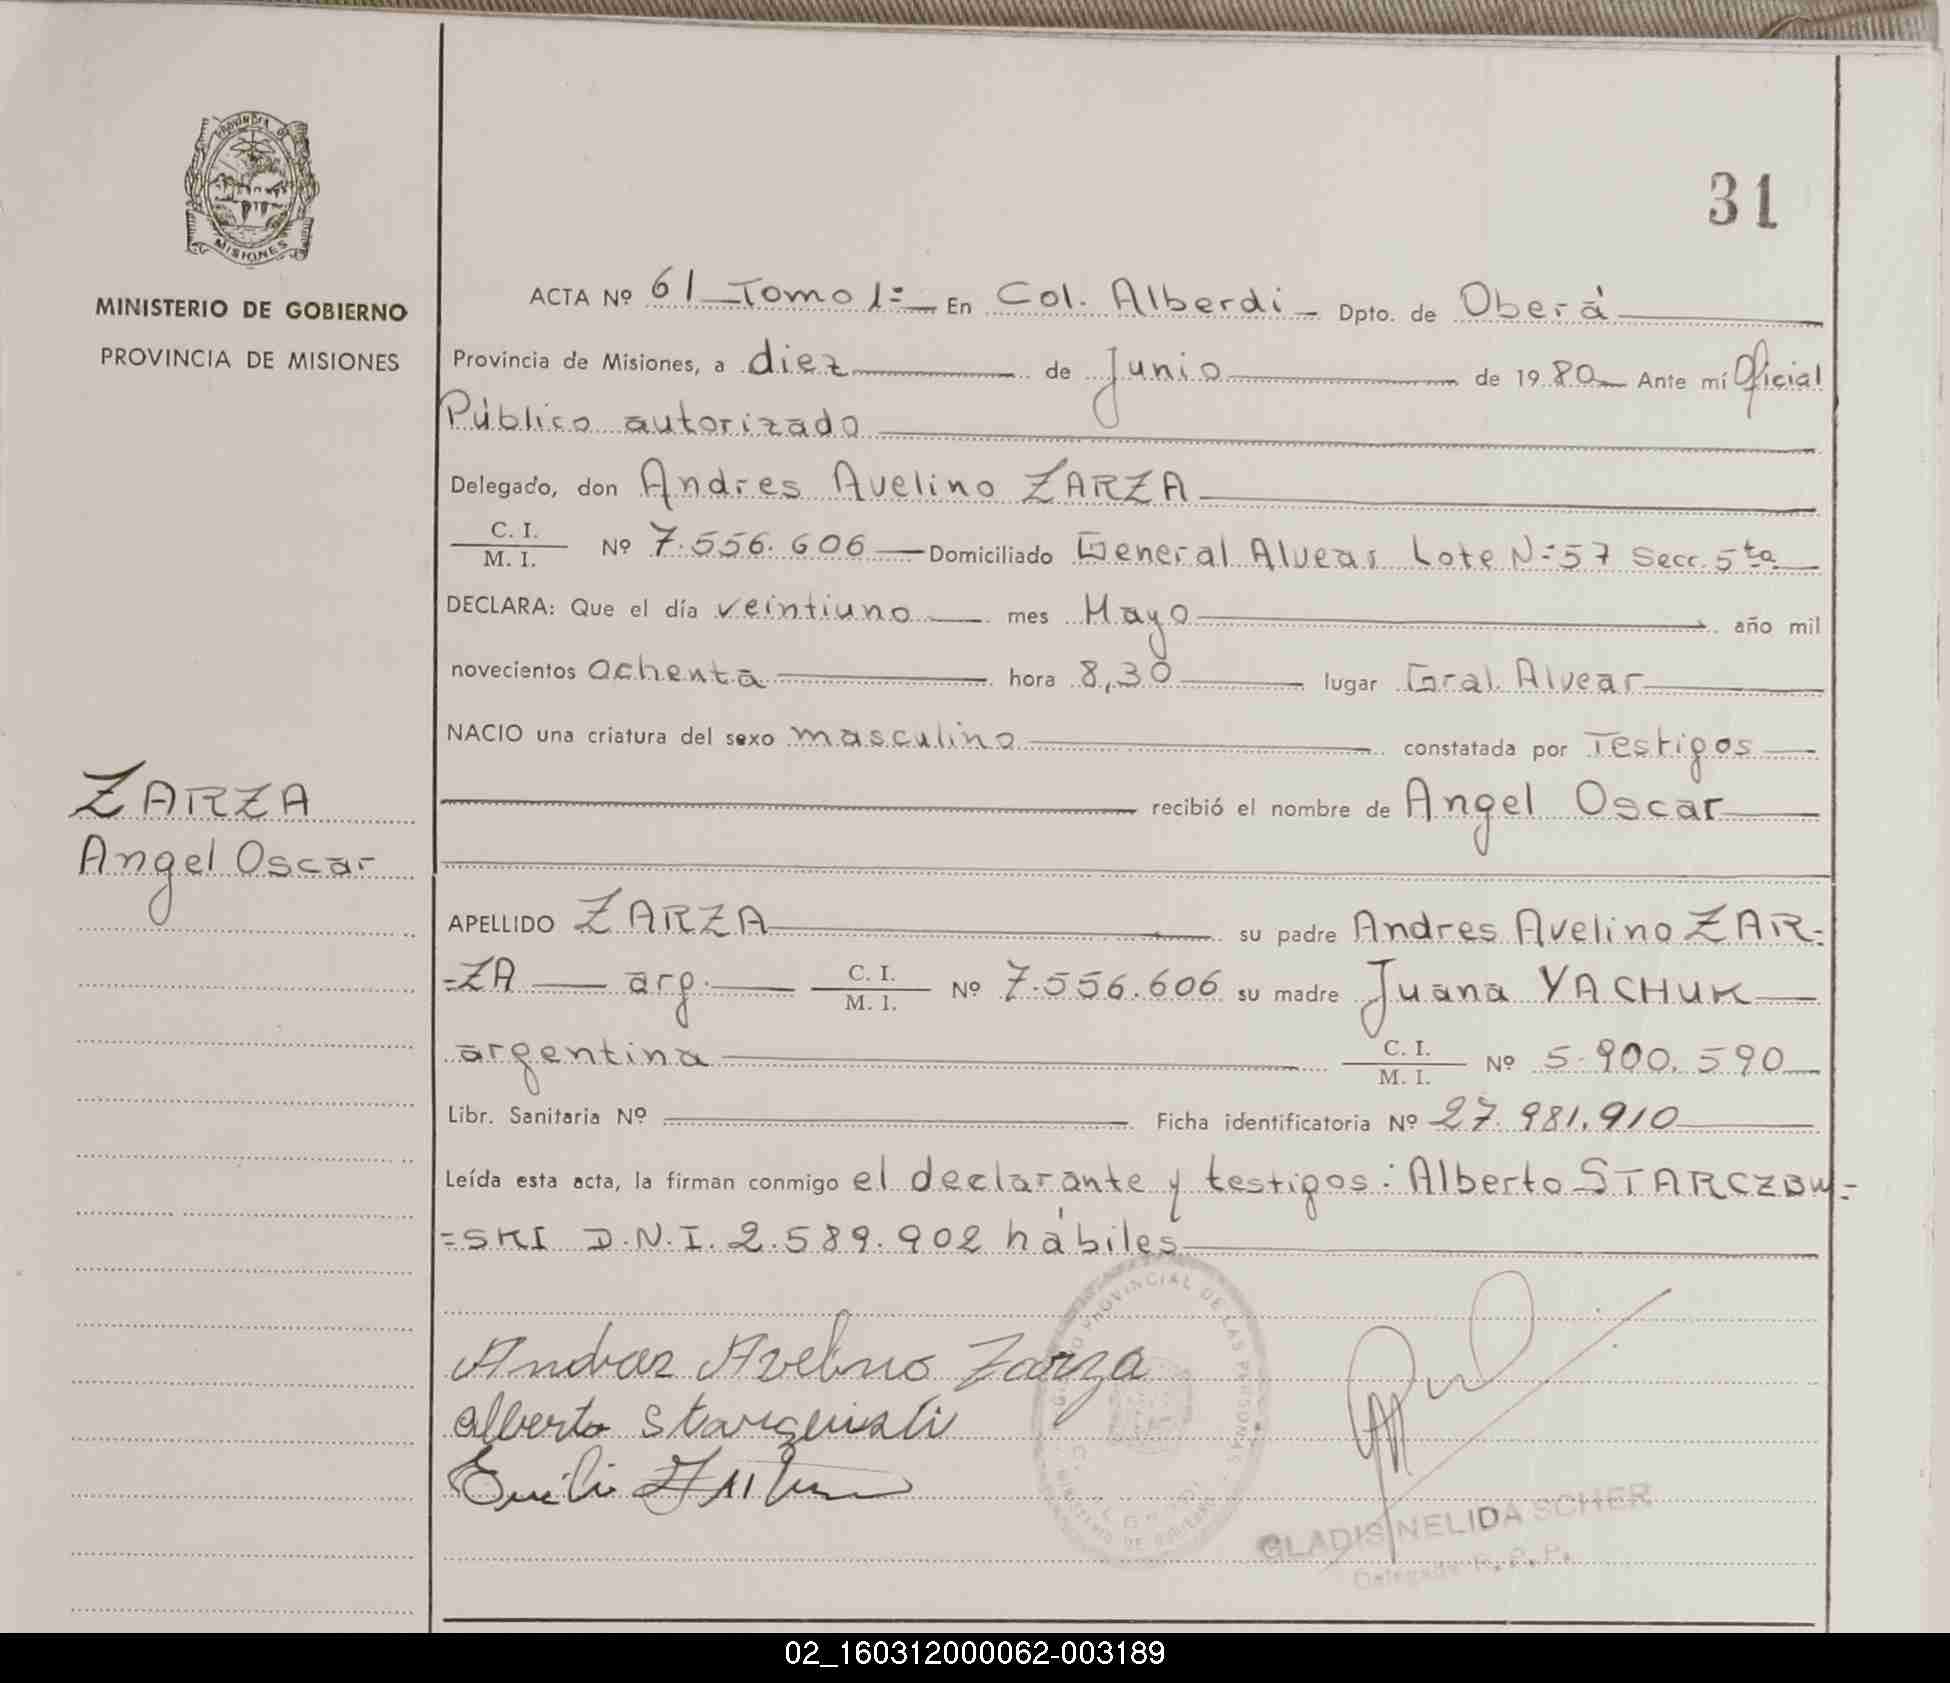 PROVINCIA DE
MISIONES
MINISTERIO DE GOBIERNO
PROVINCIA DE MISIONES
31
ACTA Nº 61 Tomo 1º En Col. Alberdi Dpto. de Oberá
Provincia de Misiones, a diez de Junio de 1980 Ante mí Oficial
Público autorizado
Delegado, don Andres Avelino ZARZA
C. I.
M. I. Nº 7.556.606 Domiciliado General Alvear Lote Nº 57 Secc. 5ta
DECLARA: Que el día veintiuno mes Mayo año mil
novecientos ochenta hora 8,30 lugar Gral. Alvear
NACIO una criatura del sexo masculino constatada por Testigos
recibió el nombre de Angel Oscar
ZARZA
Angel Oscar
APELLIDO ZARZA su padre Andres Avelino ZAR=
=ZA arg. C. I.
M. I. Nº 7.556.606 su madre Juana YACHUK
argentina C. I.
M. I. Nº 5.900.590
Libr. Sanitaria Nº Ficha identificatoria Nº 27.981.910
Leída esta acta, la firman conmigo el declarante y testigos: Alberto STARCZEW=
=SKI D.N.I. 2.589.902 hábiles
Andres Avelino Zarza
Alberto
Emilio
PROVINCIAL DE LAS PERSONAS
MINISTERIO DE GOBIERNO
GLADIS NELIDA SCHER
Delegada R.P.P.
02_160312000062-003189